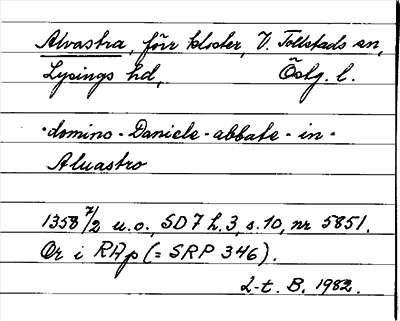 Alvastra, förr kloster, V. Tollstads sn,
Lysings hd, Östg. l.
·domino·Daniele·abbate·in·
Aluastro
1358 7/2 u.o., SD 7 h.3, s.10, nr 5851.
Or i RAp (= SRP 346).
L-t. B. 1982.